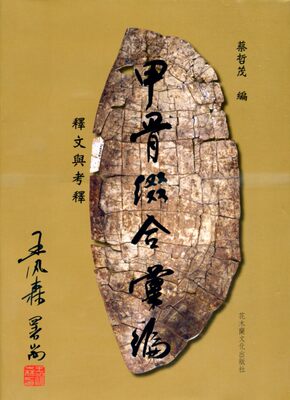 蔡哲茂 編
甲骨綴合彙編
釋文與考釋
王汎森 署耑
花木蘭文化出版社